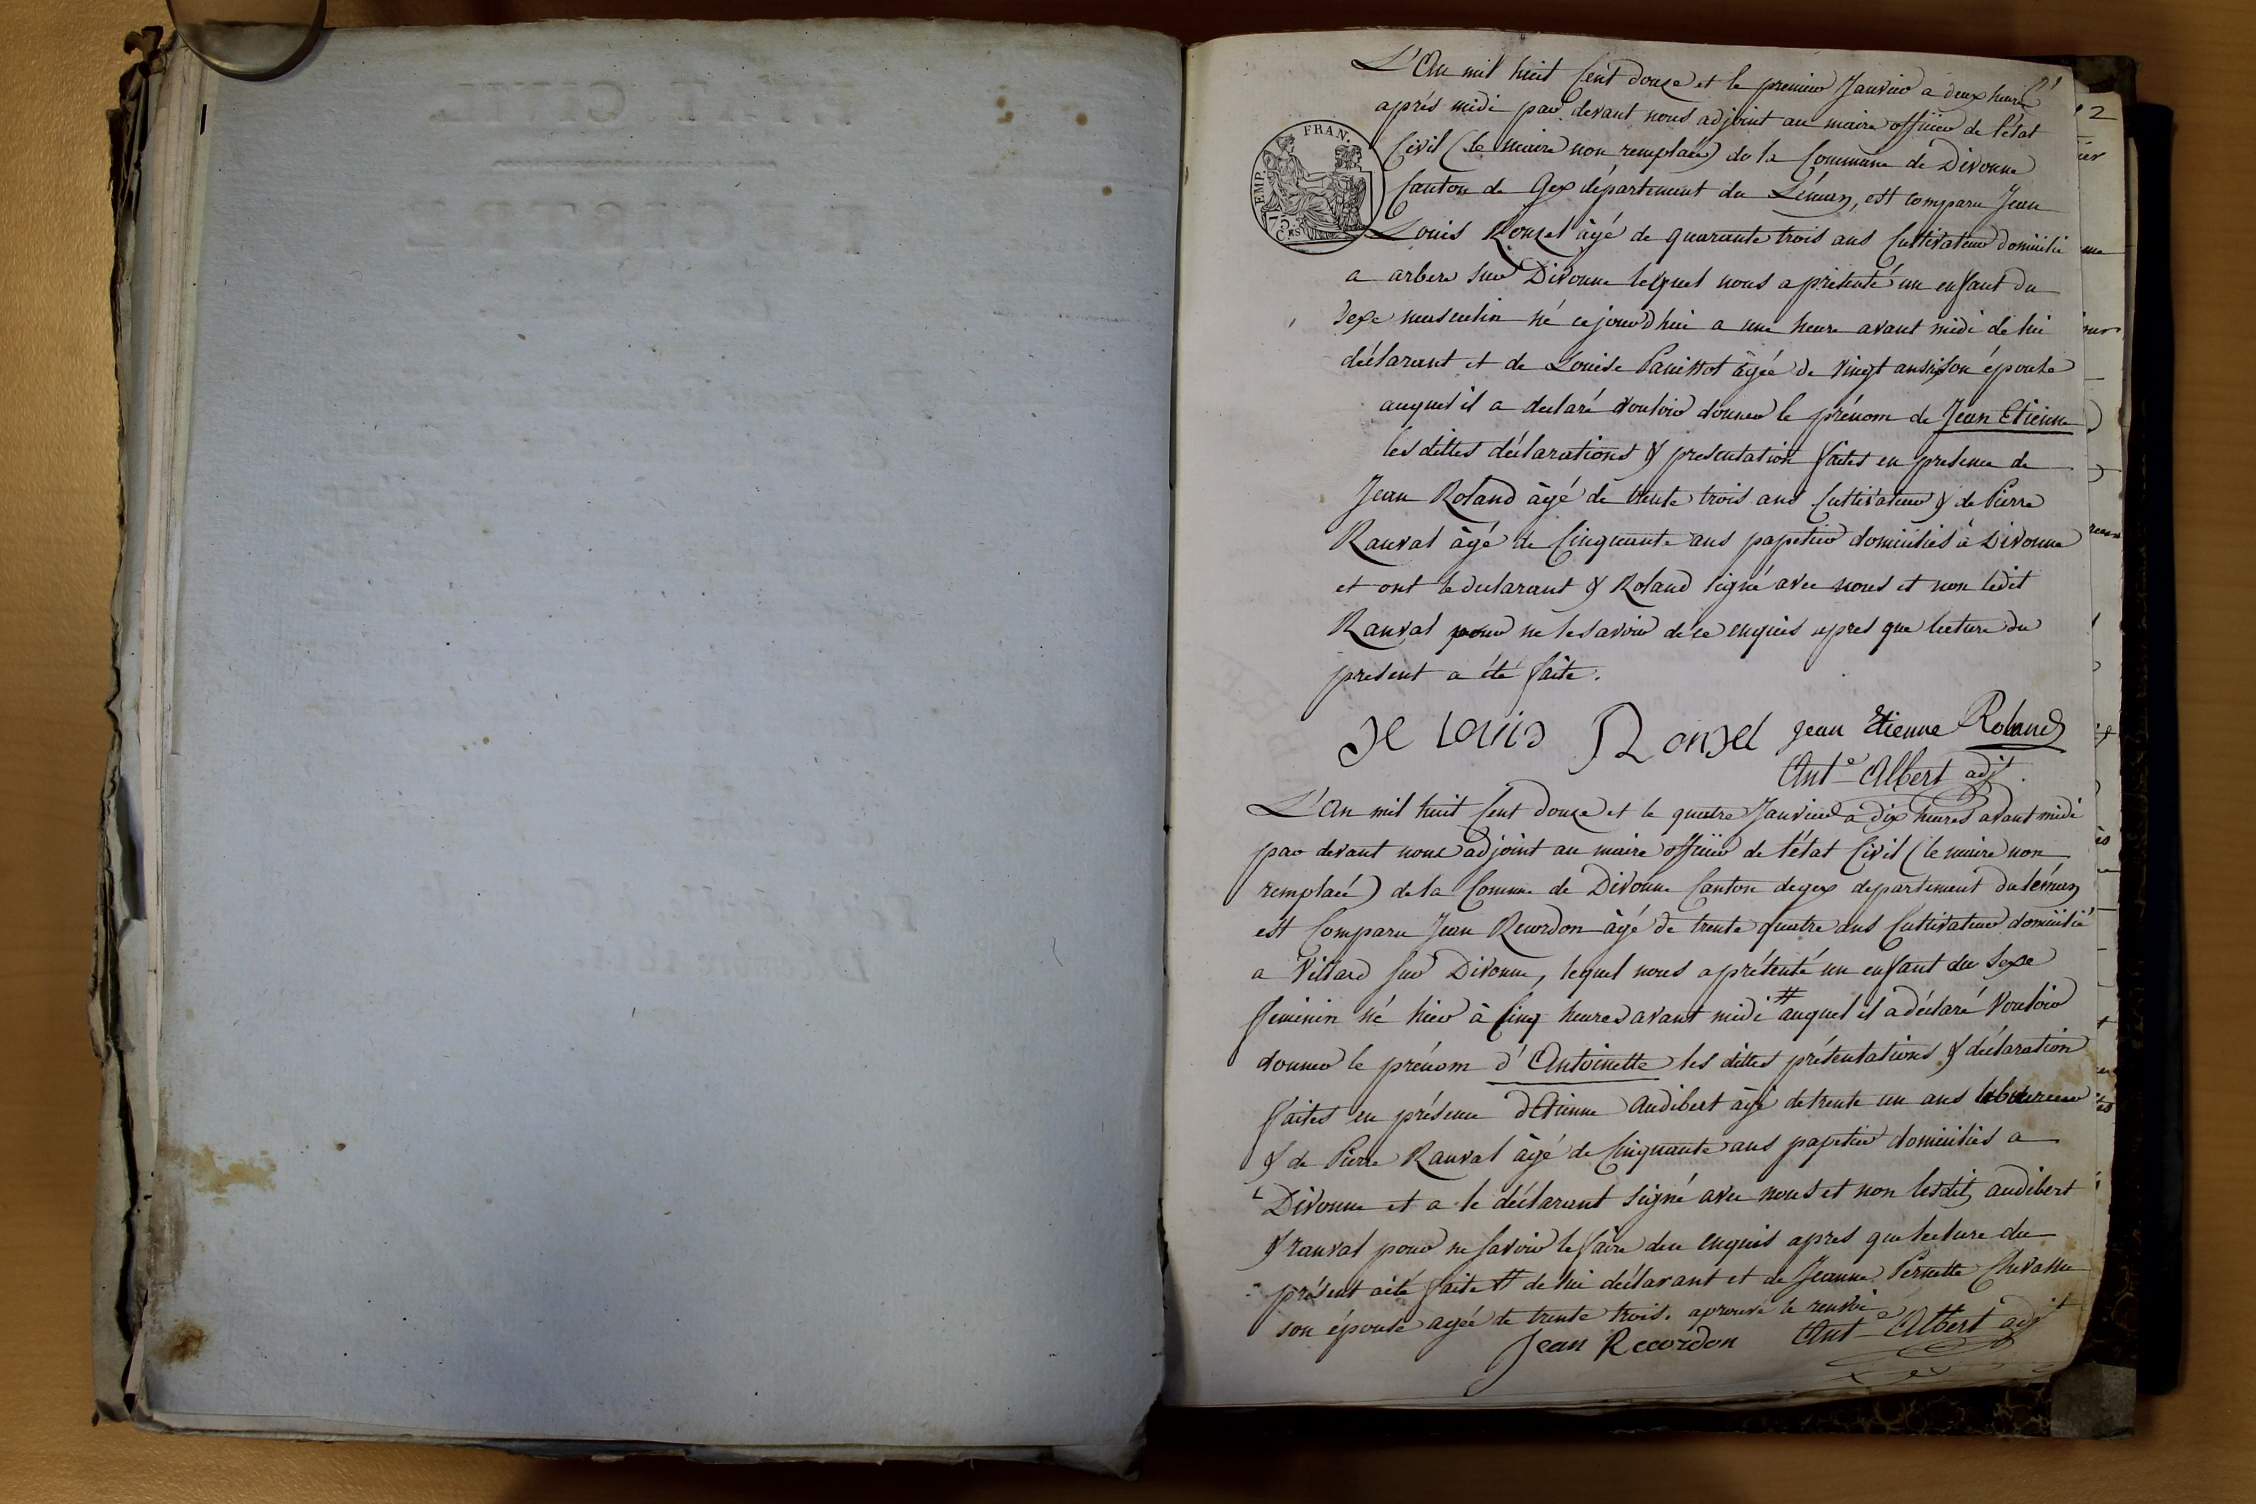 L'An mil huit Cent douze et le premier Janvier a deux heures
après midi par devant nous adjoint au maire officier de l'état
Civil (le maire non remplacé) de la Commune de Divonne
Canton de Gex département du Léman, est comparu Jean
Louis Ronzel âgé de quarante trois ans Cultivateur domicilié
a arbere sur Divonne lequel nous a présenté un enfant du
Sexe masculin né cejourd'hui a une heure avant midi de lui
déclarant et de Louise Panissot âgée de vingt ans son épouse
auquel il a declaré vouloir donner le prénom de Jean Etienne
les dittes déclarations & presentation faites en presence de
Jean Roland âgé de trente trois ans Cultivateur & de Pierre
Ranval âgé de Cinquante ans papetier domiciliés à Divonne
et ont le declarant & Roland signé avec nous et non ledit
Ranval pour ne le savoir de ce enquis apres que lecture du
present a été faite.
EMP. FRAN.
75 Ces
Je Louis Ronzel Jean Etienne Roland
Ante Albert adjt
L'An mil huit Cent douze et le quatre Janvier a dix heures avant midi
par devant nous adjoint au maire officier de l'état Civil (le maire non
remplacé) de la Comune de Divonne Canton de gex departement du léman
est Comparu Jean Recordon âgé de trente quatre ans Cultivateur domicilié
a Villard sur Divonne, lequel nous a présenté un enfant du Sexe
féminin né hier à Cinq heures avant midi # auquel il a déclaré Vouloir
donner le prénom d'Antoinette les dittes présentations & déclaration
faites en présence d'Etienne Audibert âgé de trente un ans laboureur
& de Pierre Ranval âgé de Cinquante ans papetier domiciliés a
Divonne et a le déclarant signé avec nous et non lesdits audibert
& ranval pour ne savoir le faire de ce enquis apres que lecture du
présent a été faite # de lui déclarant et de Jeanne Pernette Chevassu
son épouse agée de trente trois. aprouvé le renvoi
Jean Recordon Ante Albert adjt